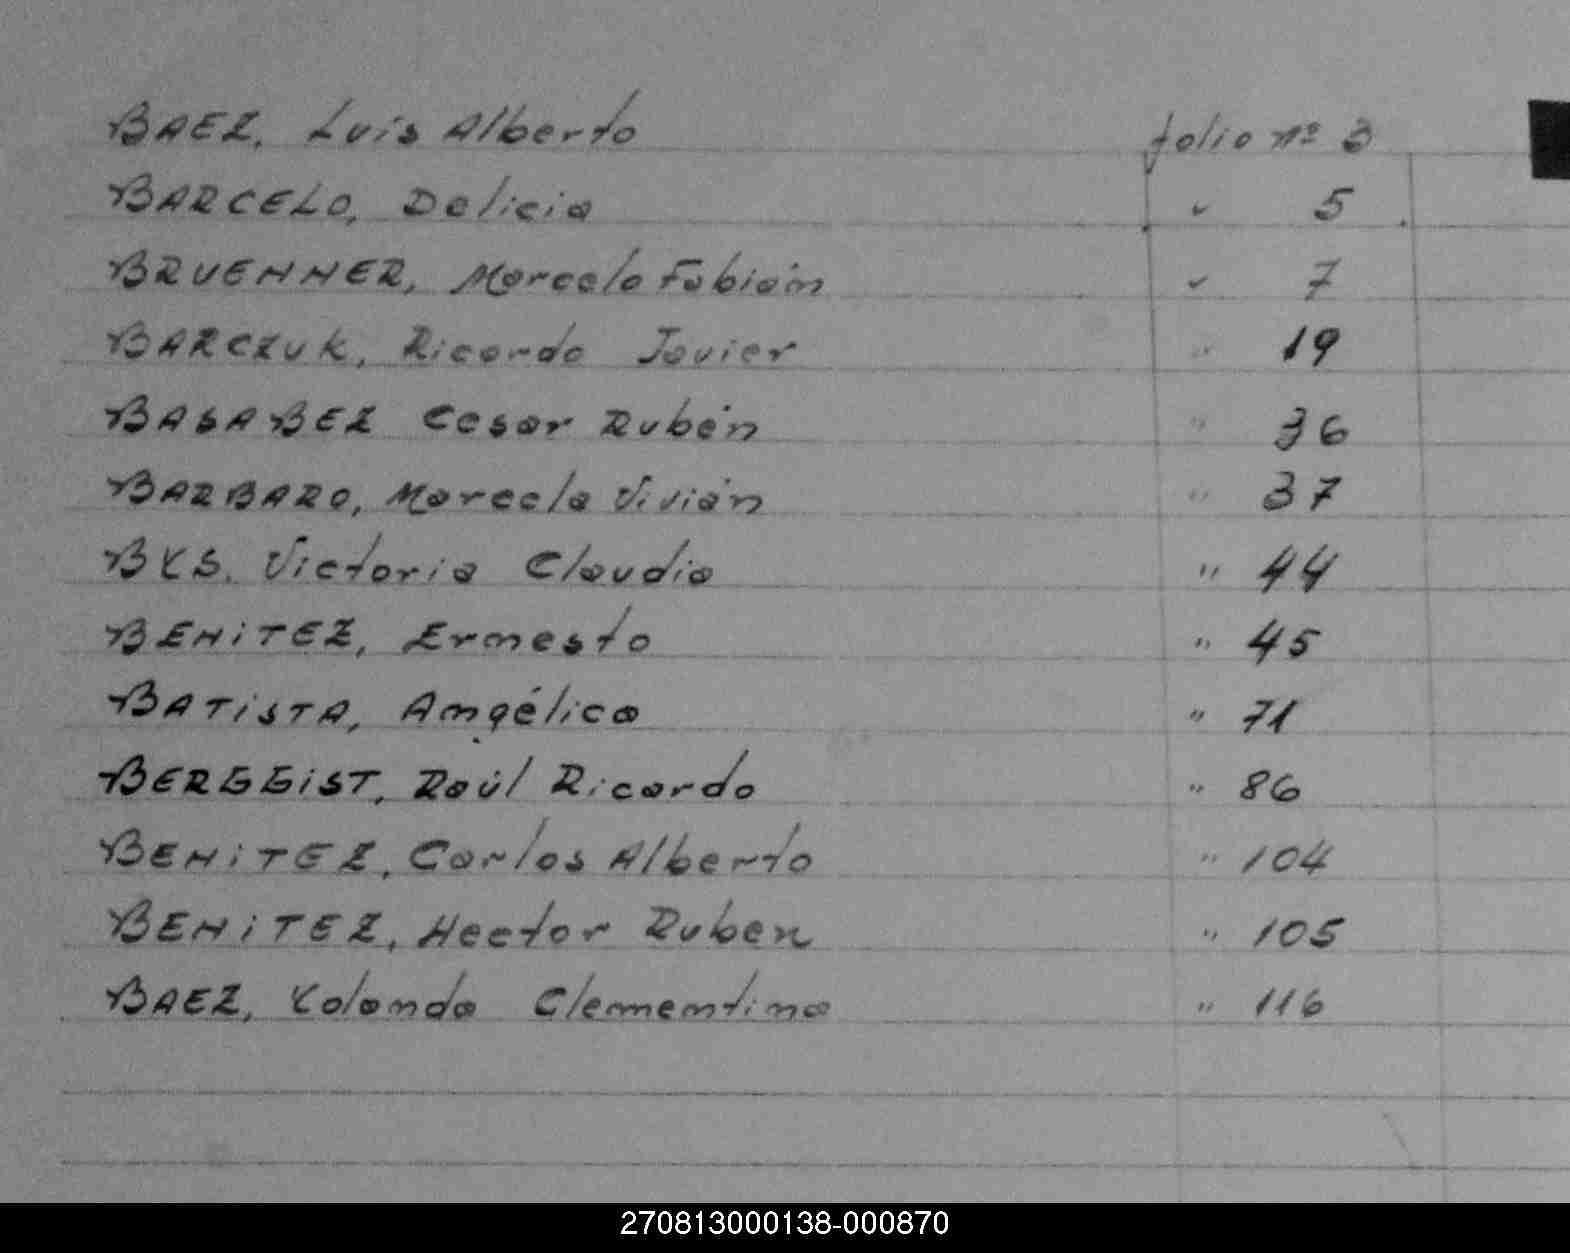 BAEZ, Luis Alberto folio nº 3
BARCELO, Delicia " 5
BRUENNER, Marcelo Fabián " 7
BARCZUK, Ricardo Javier " 19
BASABEZ Cesar Rubén " 36
BARBARO, Marcela Vivián " 37
BYS, Victoria Claudia " 44
BENiTEZ, Ernesto " 45
BATiSTA, Angélica " 71
BERGGiST, Raúl Ricardo " 86
BENiTEZ, Carlos Alberto " 104
BENiTEZ, Hector Ruben " 105
BAEZ, Yolanda Clementina " 116
270813000138-000870